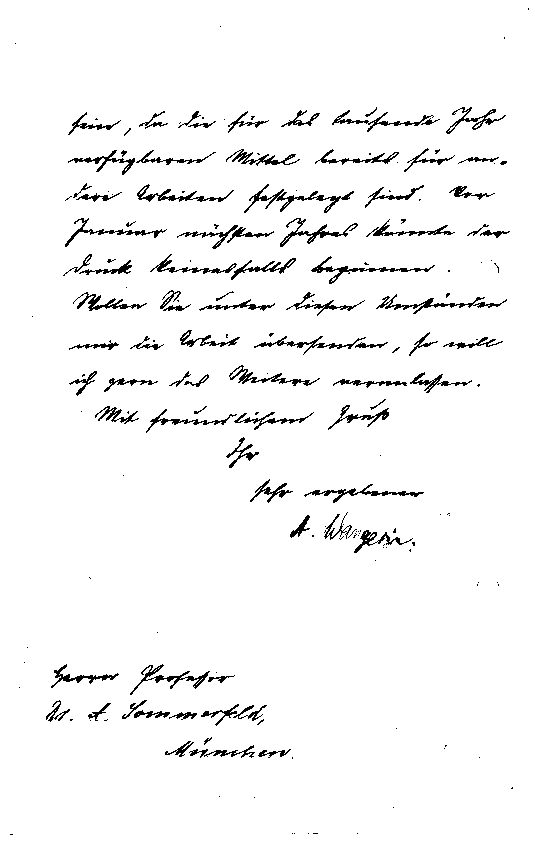 sein, da die für das laufende Jahr
verfügbaren Mittel bereits für an-
dere Arbeiten festgelegt sind. Vor
Januar nächsten Jahres könnte der
Druck keinesfalls beginnen.
Wollen Sie unter diesen Umständen
mir die Arbeit übersenden, so will
ich gern das Weitere veranlassen.
Mit freundlichem Gruß
Ihr
sehr ergebener
A. Wangerin.
Herrn Professor
Dr. A. Sommerfeld,
München.